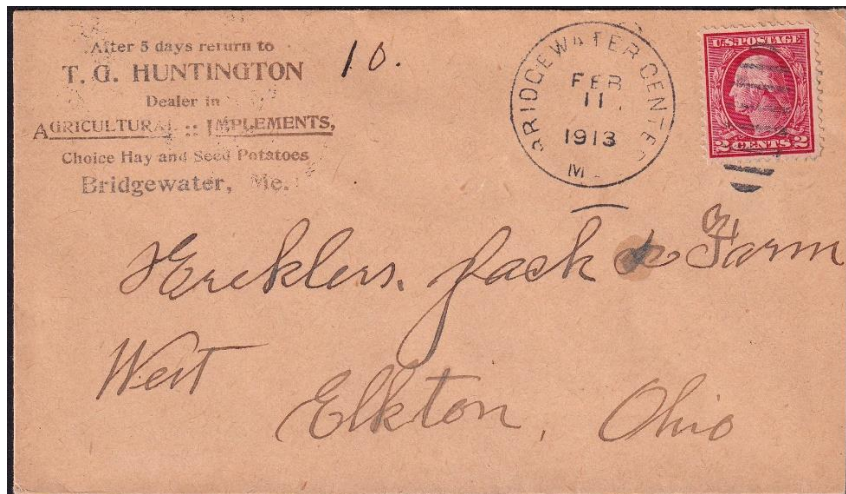 After 5 days return to
T. G. HUNTINGTON
Dealer in
AGRICULTURAL :: IMPLEMENTS,
Choice Hay and Seed Potatoes
Bridgewater, Me.
10.
BRIDGEWATER CENTER
FEB
11
1913
M
U.S. POSTAGE
2 CENTS 2
Jack Farm
West
Elkton, Ohio